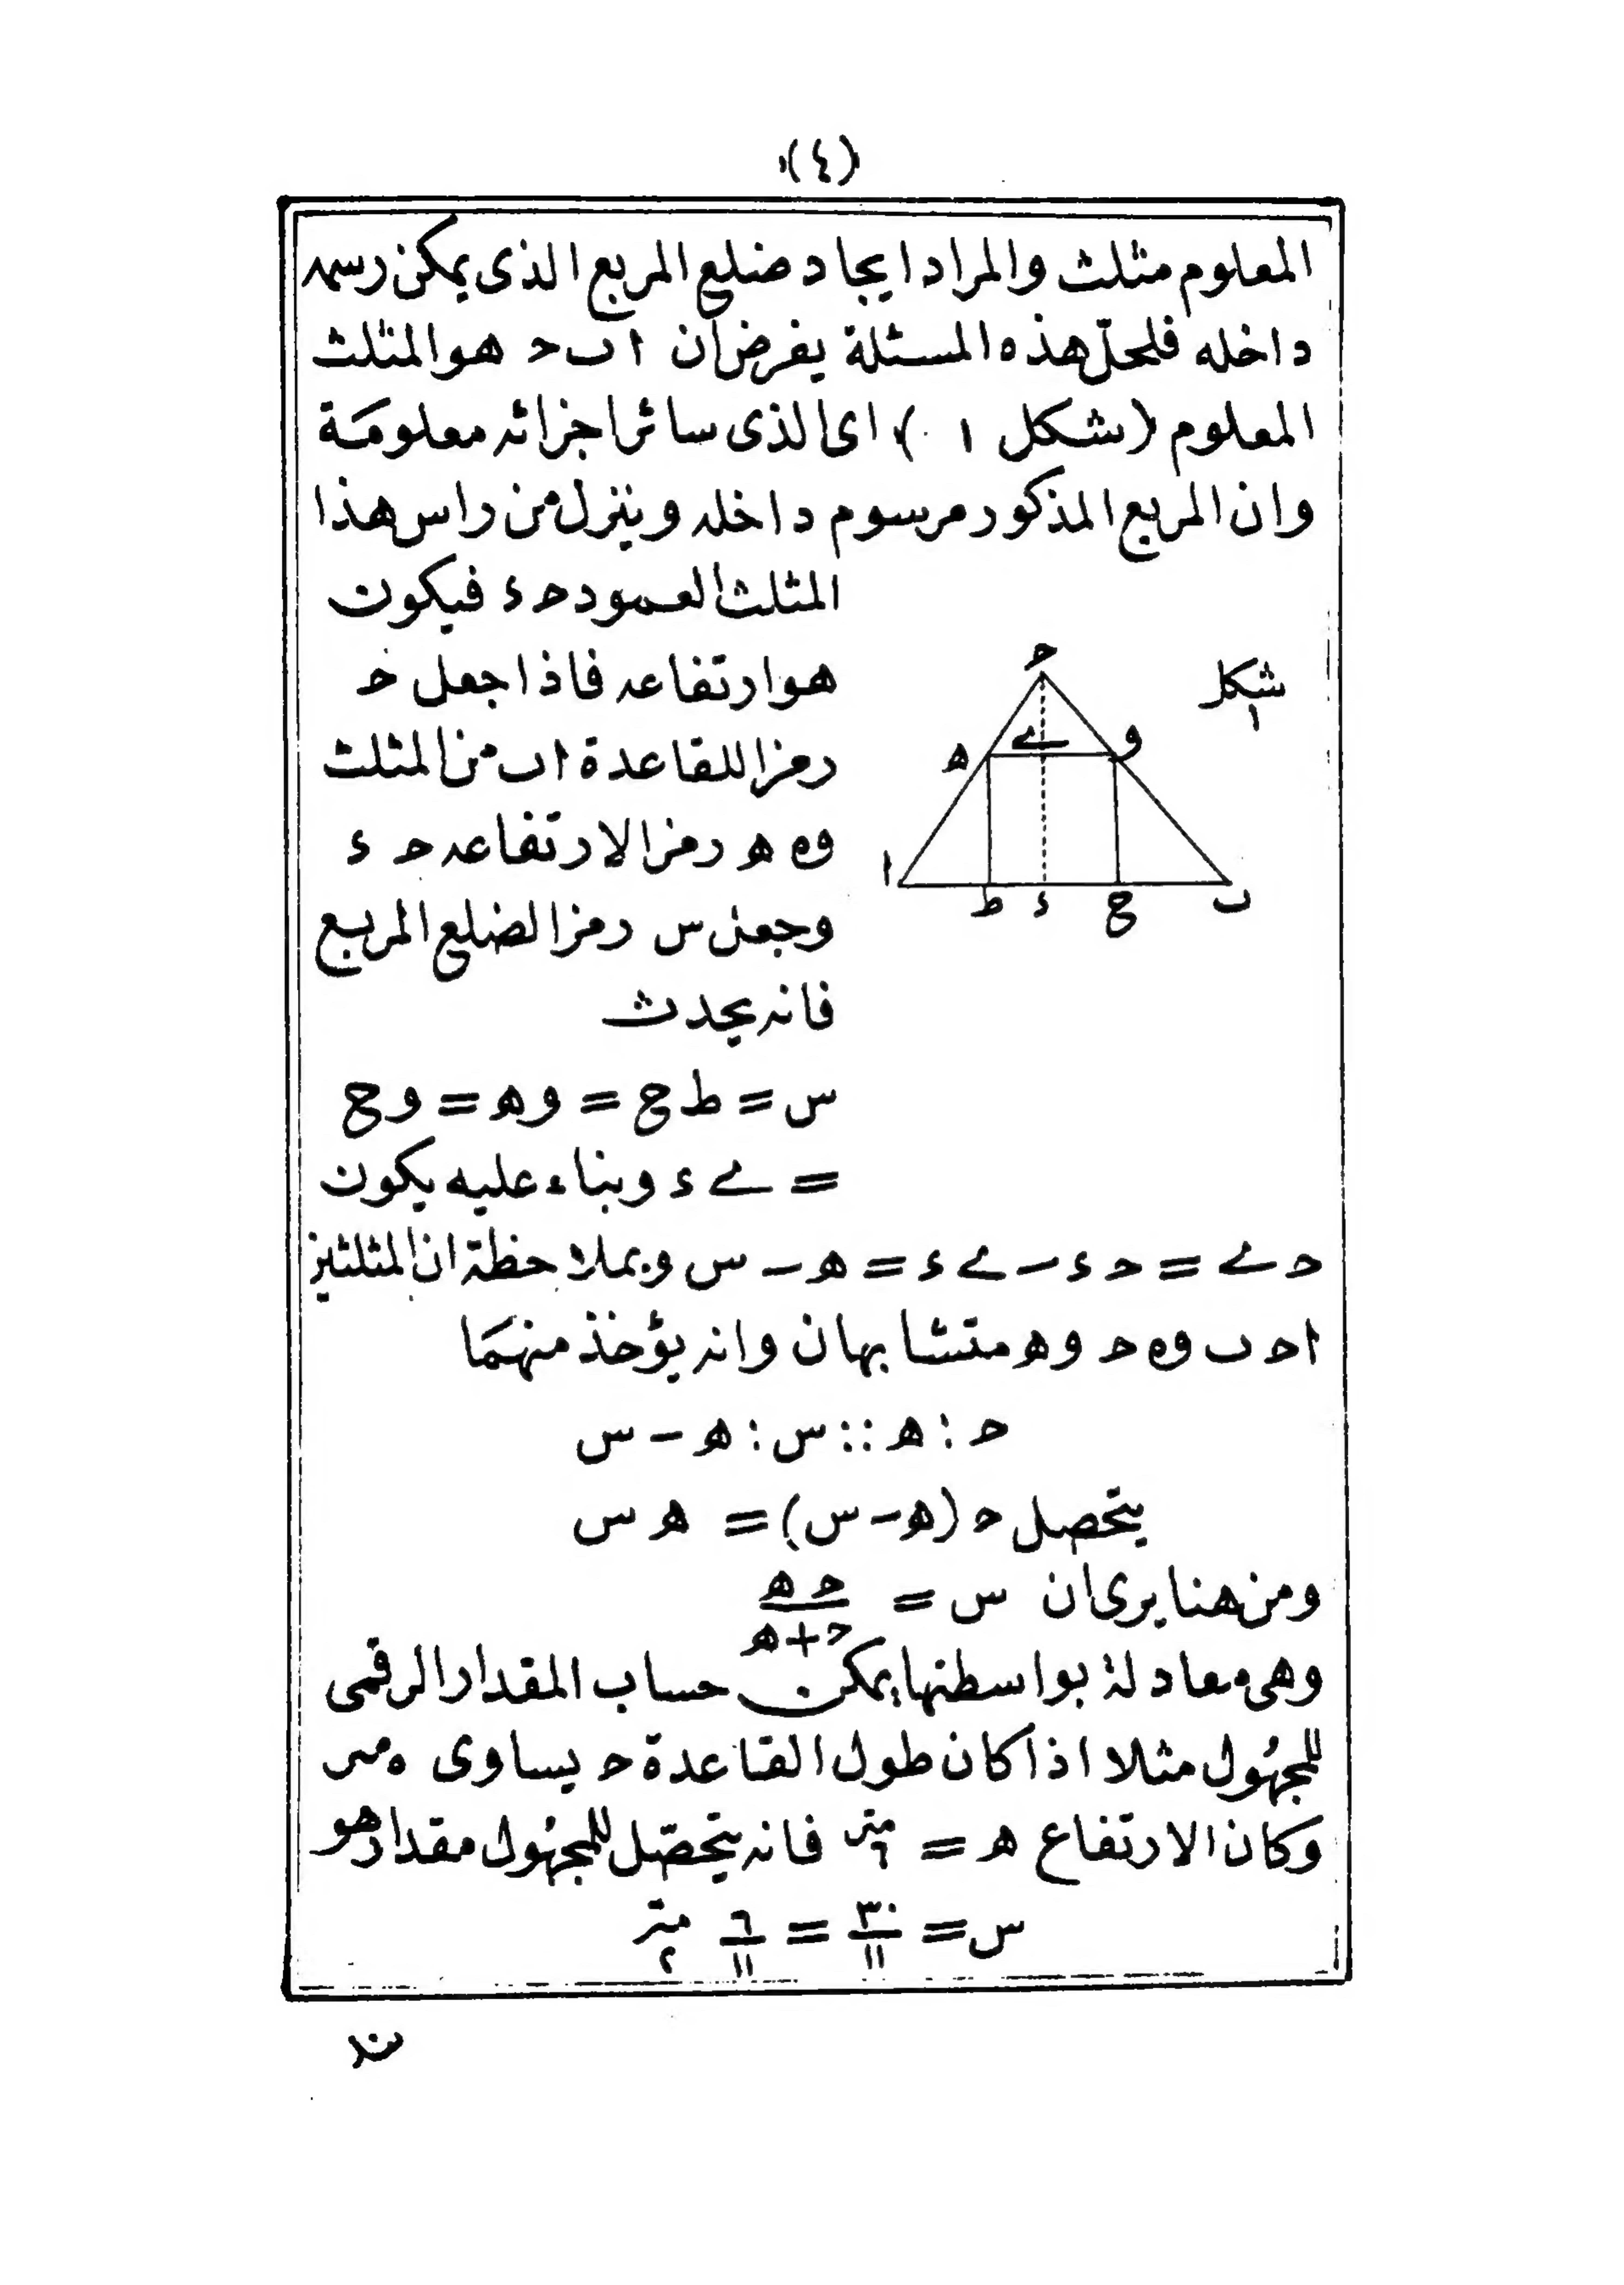 (٤)
المعلوم مثلث والمراد ايجاد ضلع المربع الذى يمكن رسمه
داخله فلحلّ هذه المسئلة يفرض ان ا ب ح هو المثلث
المعلوم (شكل ١) اى الذى سائر اجزائه معلومة
وان المربع المذكور مرسوم داخله وينزل من راس هذا
المثلث العمود ح ء فيكون
هو ارتفاعه فاذا جعل ح
رمزا للقاعدة ا ب من المثلث
و ه رمزا لارتفاعه ح ء
وجعل س رمزا لضلع المربع
فانه يحدث
س = ط ع = و ه = و ع
= ے ء وبناء عليه يكون
شكل
١
ح
ه ے و
ا ط ء ع ب
ح ے = ح ء − ے ء = ه − س وبملاحظة ان المثلثين
ا ح ب و ح و ه متشابهان وانه يؤخذ منهما
ح : ه :: س : ه − س
يتحصل ح (ه − س) = ه س
ومن هنا يرى ان س = ح ه / ح + ه
وهى معادلة بواسطتها يمكن حساب المقدار الرقمى
للمجهول مثلا اذا كان طول القاعدة ح يساوى ٥ متر
وكان الارتفاع ه = ٦ متر فانه يتحصّل للمجهول مقدار هو
س = ٣٠/١١ = ٦/١١ ٢ متر